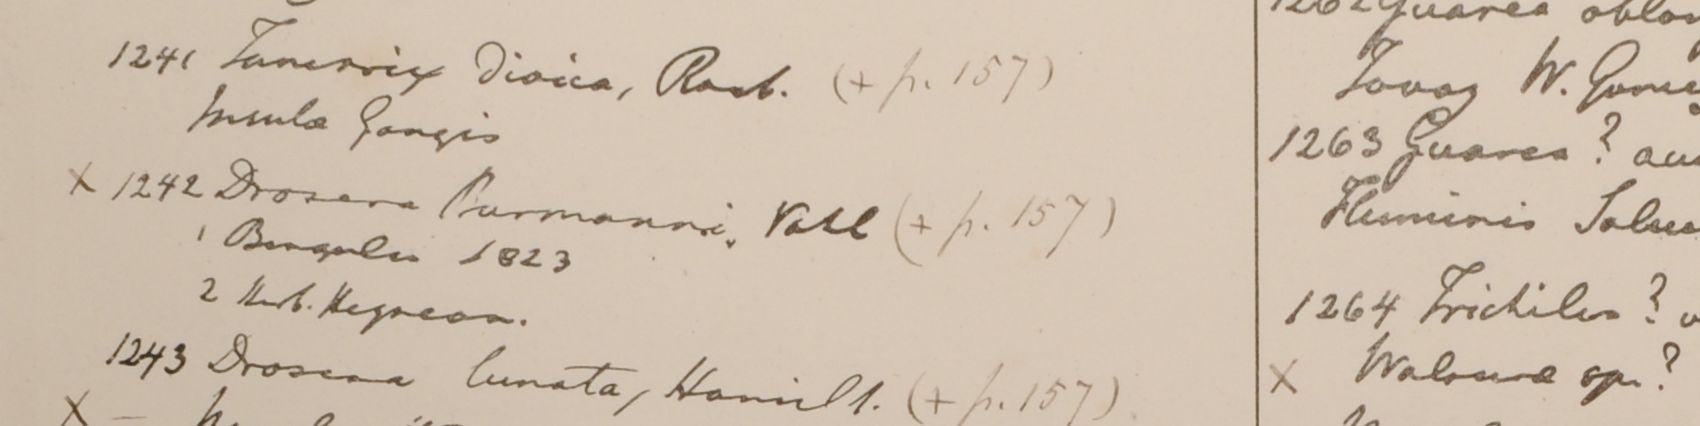 1241 Tamarix dioica, Roxb. (+ p. 157)
Insulae Gangis
X 1242 Drosera Burmanni. Vahl (+ p. 157)
1 Bengalia 1823
2 Herb. Heynean.
1243 Drosera lunata, Hamilt. (+ p. 157)
X —
1262 Guarea oblon
Tavoy W. Gomez
1263 Guarea ?
Fluminis
1264 Trichilia ?
X Walsura sp. ?